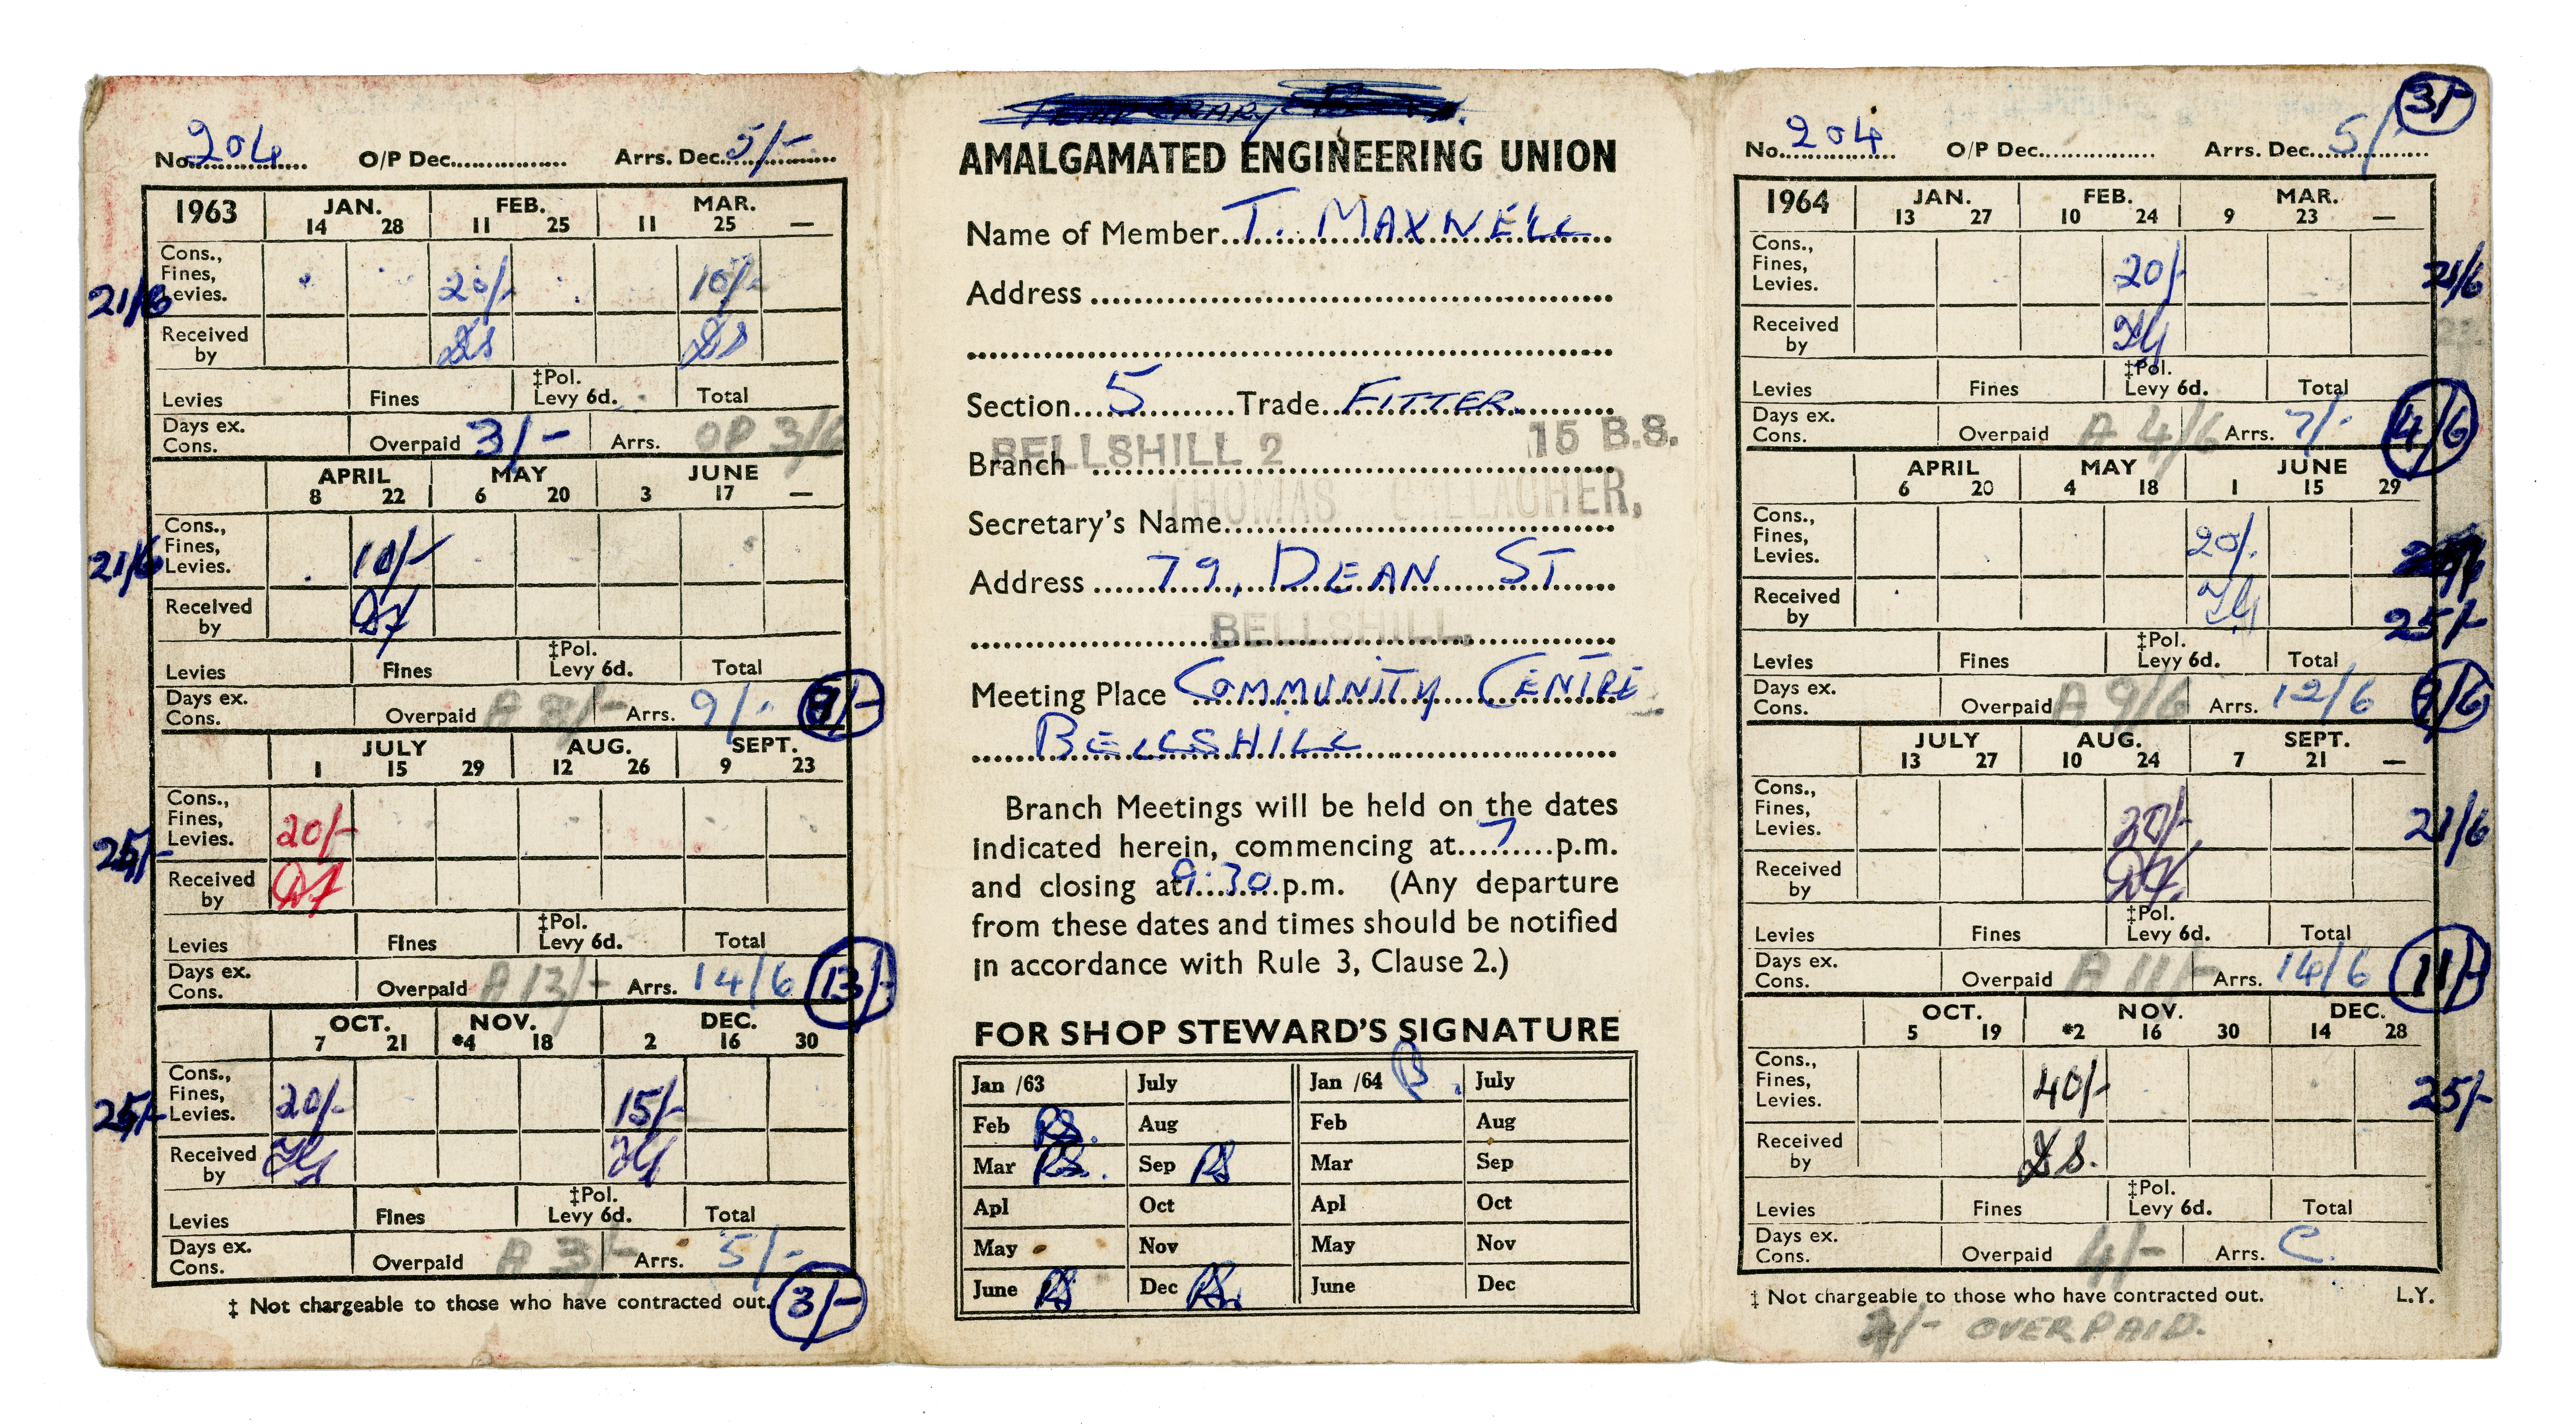 No. 204 O/P Dec. Arrs. Dec. 5/-
1963 JAN. FEB. MAR.
14 28 11 25 11 25 —
Cons., Fines, Levies. 20/- 10/-
21/6
Received by
Levies Fines ‡Pol. Levy 6d. Total
Days ex. Cons. Overpaid 3/- Arrs. OP 3/6
APRIL MAY JUNE
8 22 6 20 3 17 —
Cons., Fines, Levies. 10/-
21/6
Received by
Levies Fines ‡Pol. Levy 6d. Total
Days ex. Cons. Overpaid Arrs. 9/-
JULY AUG. SEPT.
1 15 29 12 26 9 23
Cons., Fines, Levies. 20/-
25/-
Received by
Levies Fines ‡Pol. Levy 6d. Total
Days ex. Cons. Overpaid A 13/- Arrs. 14/6 13/-
OCT. NOV. DEC.
7 21 *4 18 2 16 30
Cons., Fines, Levies. 20/- 15/-
25/-
Received by
Levies Fines ‡Pol. Levy 6d. Total
Days ex. Cons. Overpaid A 3/- Arrs. 5/-
‡ Not chargeable to those who have contracted out. 3/-
AMALGAMATED ENGINEERING UNION
Name of Member T. MAXWELL
Address
Section 5 Trade FITTER
BELLSHILL 2 15 B.S.
Branch
THOMAS GALLAGHER,
Secretary's Name
Address 79, DEAN ST
BELLSHILL,
Meeting Place COMMUNITY CENTRE
BELLSHILL
Branch Meetings will be held on the dates
indicated herein, commencing at 7 p.m.
and closing at 9.30 p.m. (Any departure
from these dates and times should be notified
in accordance with Rule 3, Clause 2.)
FOR SHOP STEWARD'S SIGNATURE
Jan /63 July Jan /64 July
Feb RS. Aug Feb Aug
Mar RS. Sep RS Mar Sep
Apl Oct Apl Oct
May Nov May Nov
June RS Dec RS. June Dec
3/-
No. 204 O/P Dec. Arrs. Dec. 5/-
1964 JAN. FEB. MAR.
13 27 10 24 9 23 —
Cons., Fines, Levies. 20/-
21/6
Received by
Levies Fines ‡Pol. Levy 6d. Total
Days ex. Cons. Overpaid A 4/6 Arrs. 7/- 4/6
APRIL MAY JUNE
6 20 4 18 1 15 29
Cons., Fines, Levies. 20/-
Received by
25/-
Levies Fines ‡Pol. Levy 6d. Total
Days ex. Cons. Overpaid A 9/6 Arrs. 12/6 9/6
JULY AUG. SEPT.
13 27 10 24 7 21 —
Cons., Fines, Levies. 20/-
21/6
Received by
Levies Fines ‡Pol. Levy 6d. Total
Days ex. Cons. Overpaid A 11/- Arrs. 14/6 11/-
OCT. NOV. DEC.
5 19 *2 16 30 14 28
Cons., Fines, Levies. 40/-
25/-
Received by
Levies Fines ‡Pol. Levy 6d. Total
Days ex. Cons. Overpaid 4/- Arrs. C.
‡ Not chargeable to those who have contracted out. L.Y.
OVERPAID.